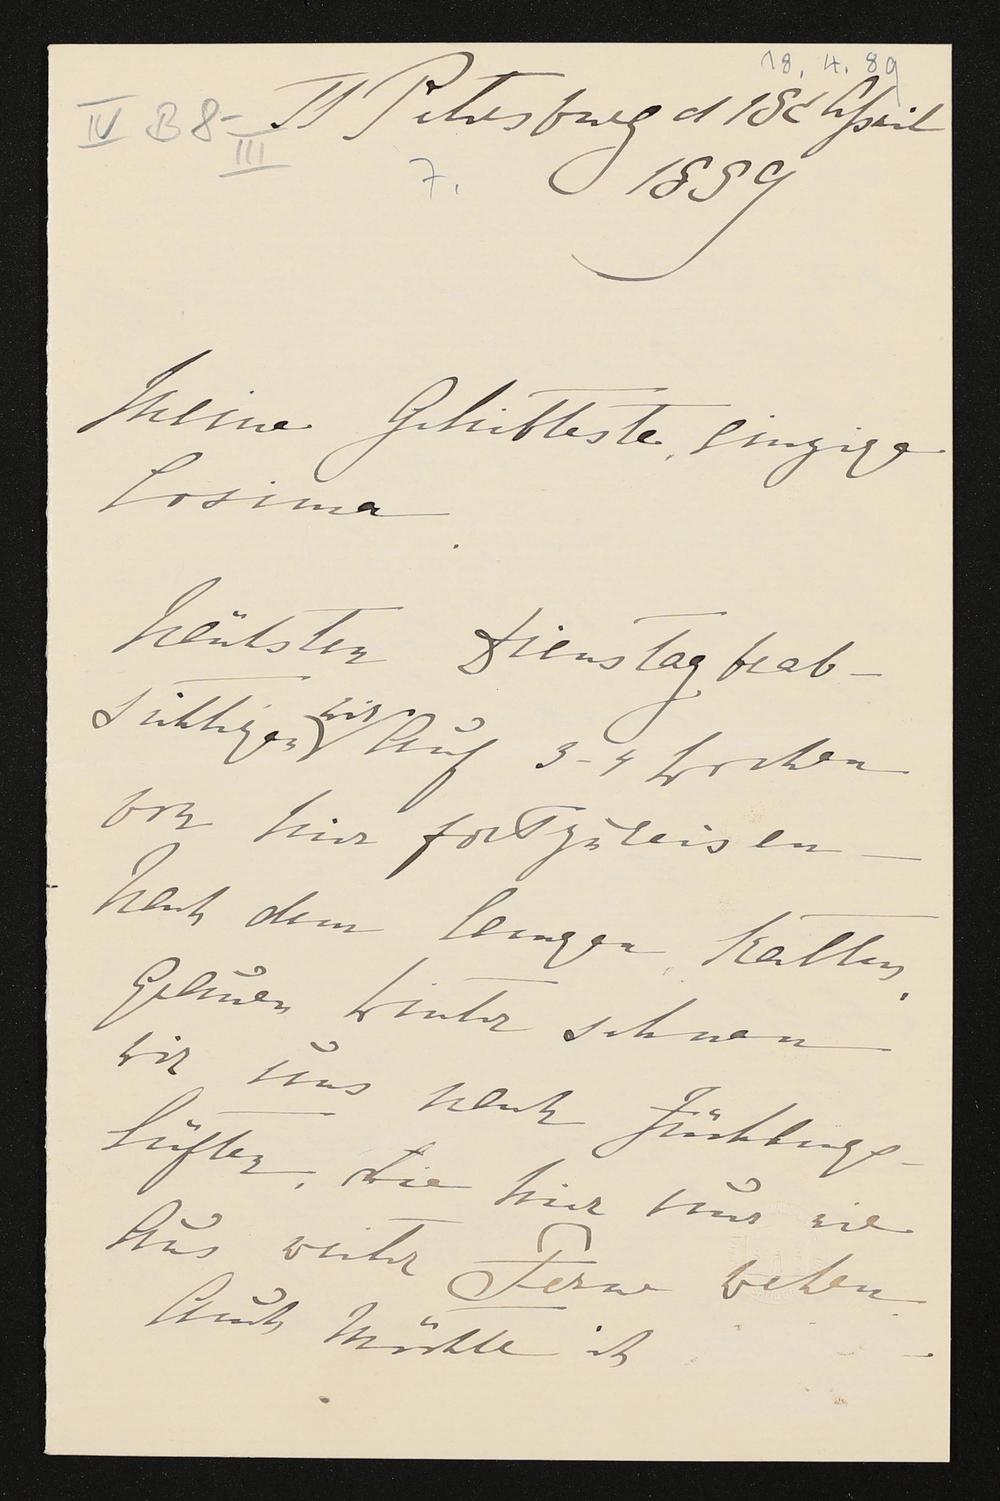 18. 4. 89
IV B 8-III
St Petersburg d 18t April
7.
1889
Meine Geliebteste, Einzige
Cosima
Nächsten Dienstag beab-
sichtigen wir auf 3-4 Wochen
von hier fortzureisen —
Nach dem langen, kalten,
grauen Winter sehnen
wir uns nach Frühlings-
lüften, die hier nur wie
aus weiter Ferne wehen.
Auch möchte ich